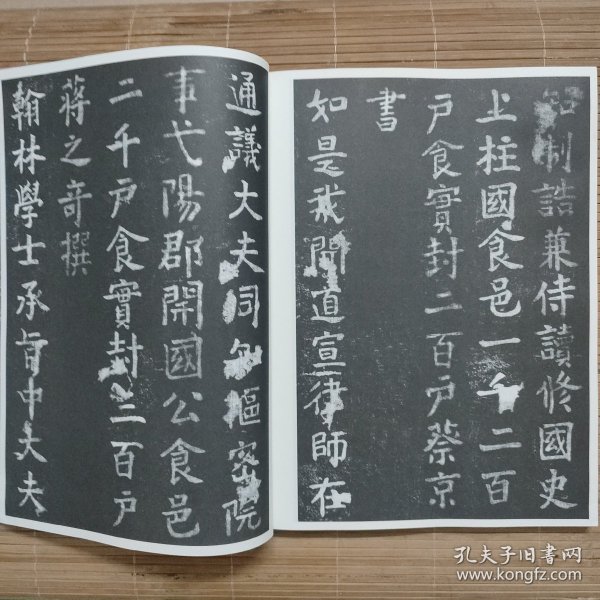 通議大夫同知樞密院
事弋陽郡開國公食邑
二千戶食實封三百戶
蔣之奇撰
翰林學士承旨中大夫
知制誥兼侍讀修國史
上柱國食邑一千二百
戶食實封二百戶蔡京
書
如是我聞道宣律師在
孔夫子旧书网
www.kongfz.com